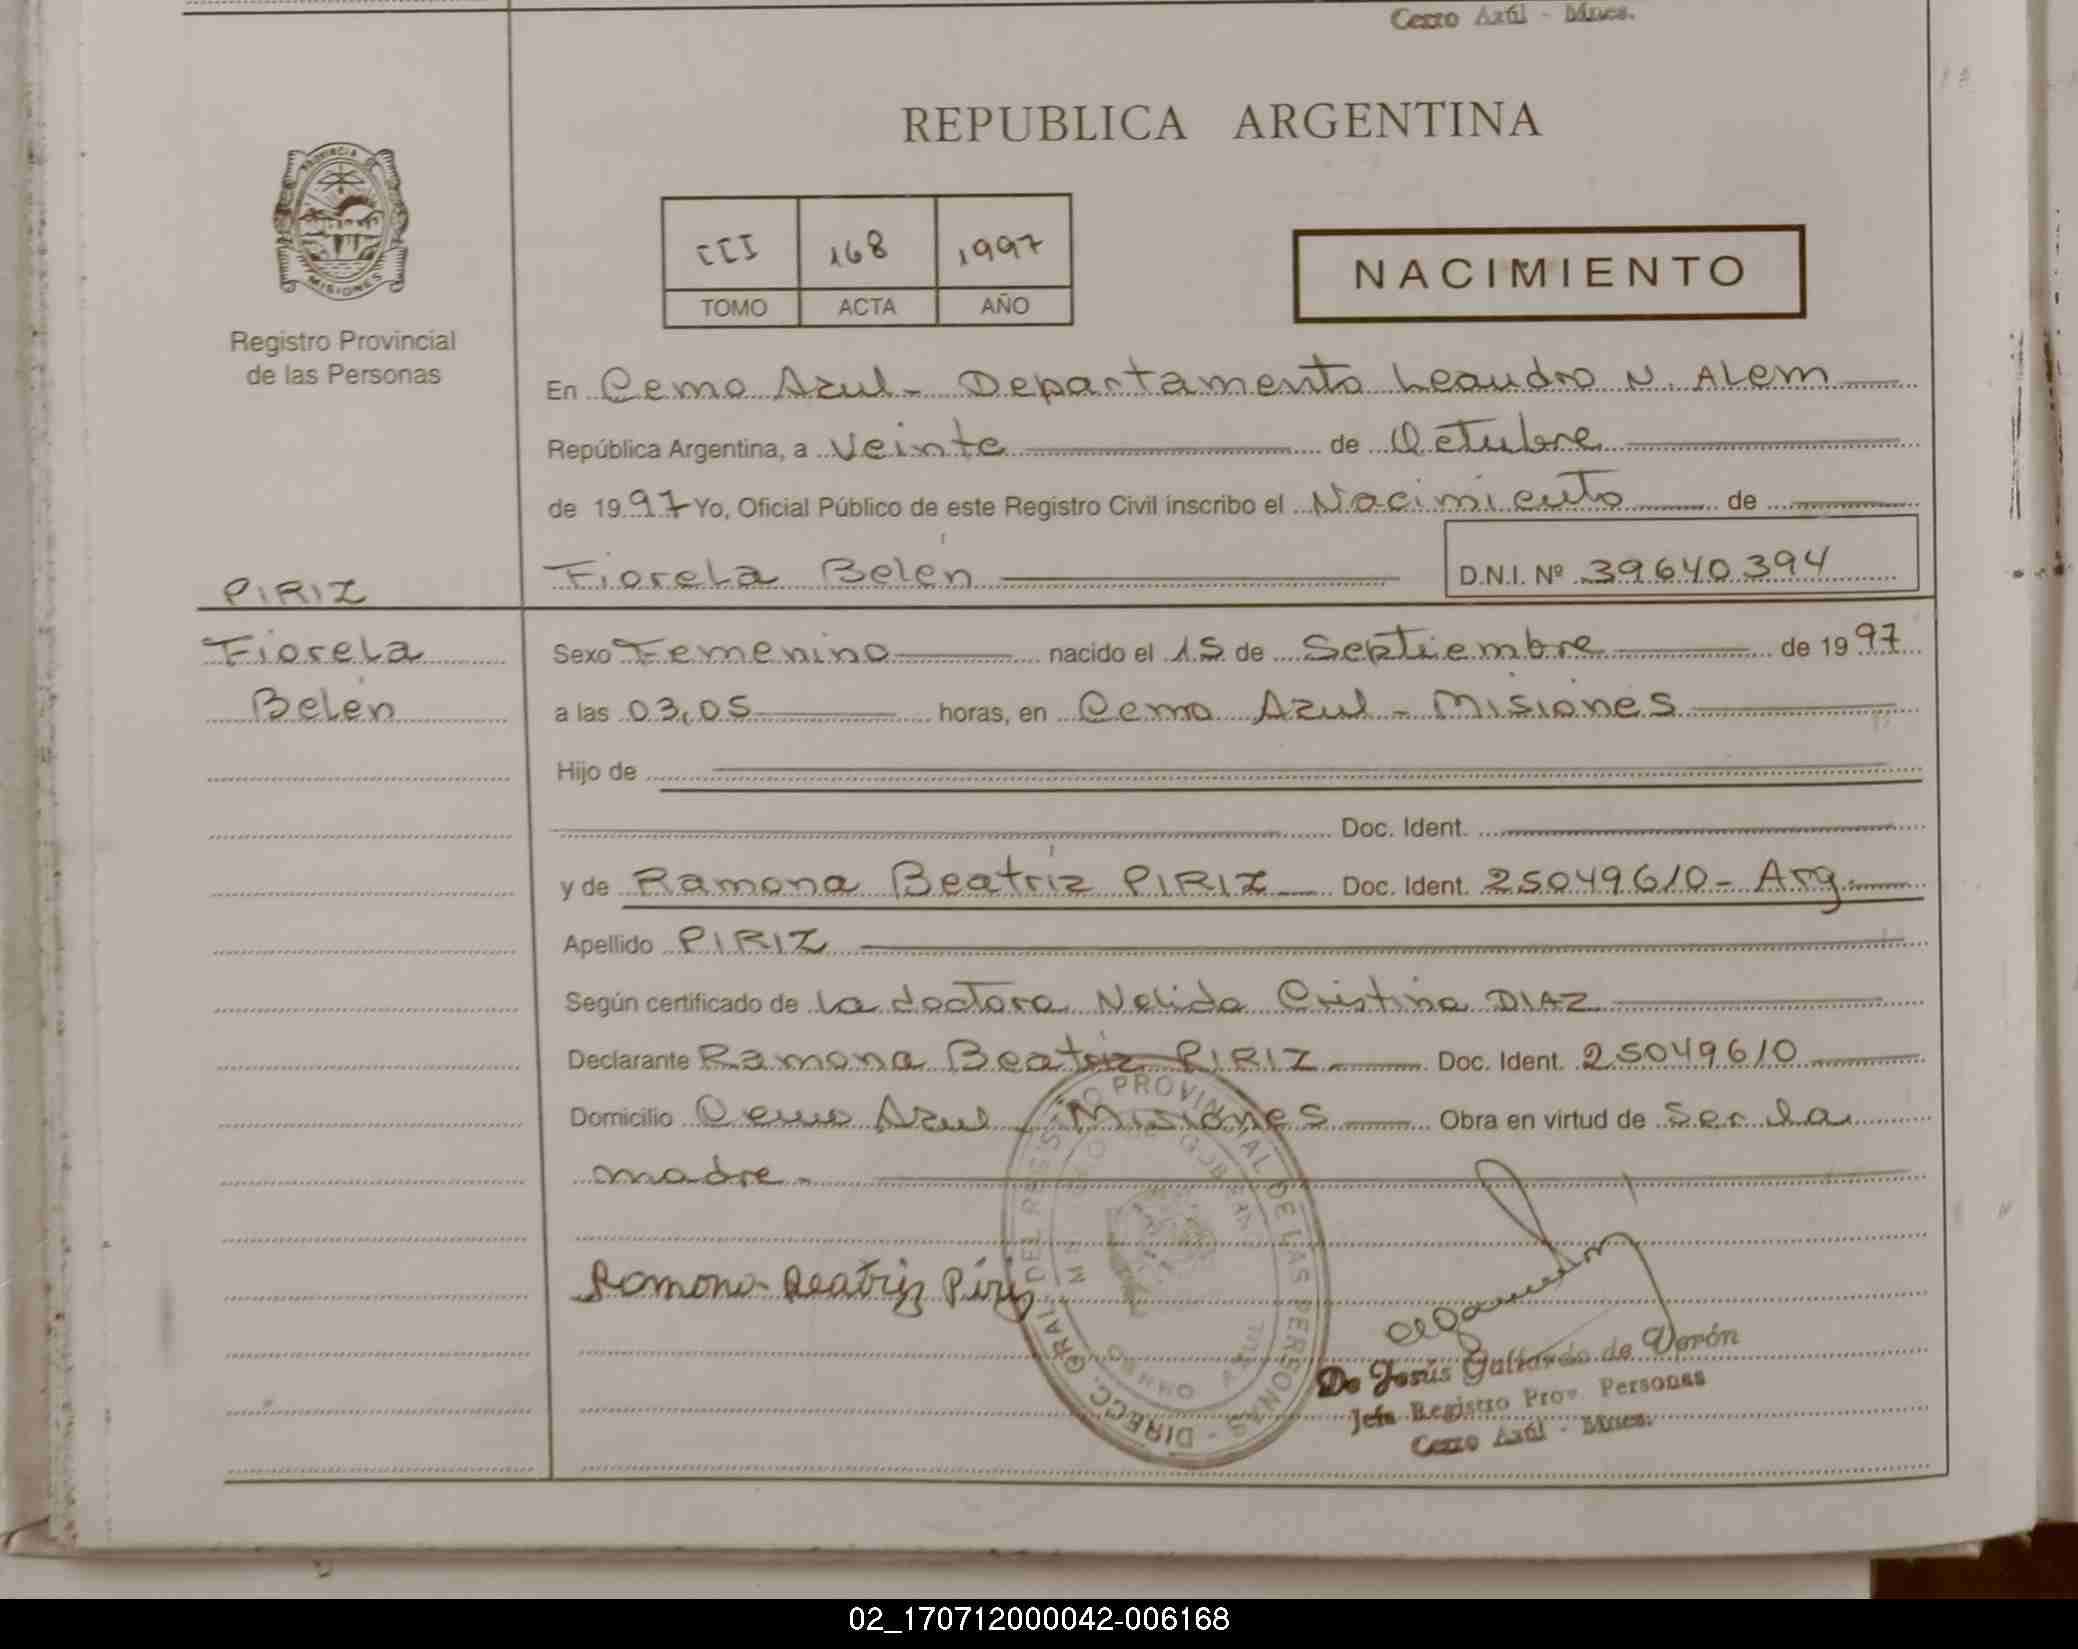 Cerro Azúl - Mnes.
REPUBLICA ARGENTINA
PROVINCIA DE
MISIONES
III 168 1997
TOMO ACTA AÑO
NACIMIENTO
Registro Provincial
de las Personas
En Cerro Azul - Departamento Leandro N. ALEM
República Argentina, a Veinte de Octubre
de 1997 Yo, Oficial Público de este Registro Civil inscribo el Nacimiento de
Fiorela Belén D.N.I. Nº 39640394
PIRIZ
Fiorela
Belén
Sexo Femenino nacido el 15 de Septiembre de 1997
a las 03,05 horas, en Cerro Azul - Misiones
Hijo de
Doc. Ident.
y de Ramona Beatriz PIRIZ Doc. Ident. 25049610 - Arg.
Apellido PIRIZ
Según certificado de la doctora Nelida Cristina DIAZ
Declarante Ramona Beatriz PIRIZ Doc. Ident. 25049610
Domicilio Cerro Azul - Misiones Obra en virtud de Ser la
madre.
Ramona Beatriz Piriz
DIRECC. GRAL. DEL REGISTRO PROVINCIAL DE LAS PERSONAS
De Jesús Gallardo de Verón
Jefa Registro Prov. Personas
Cerro Azúl - Mnes.
02_170712000042-006168